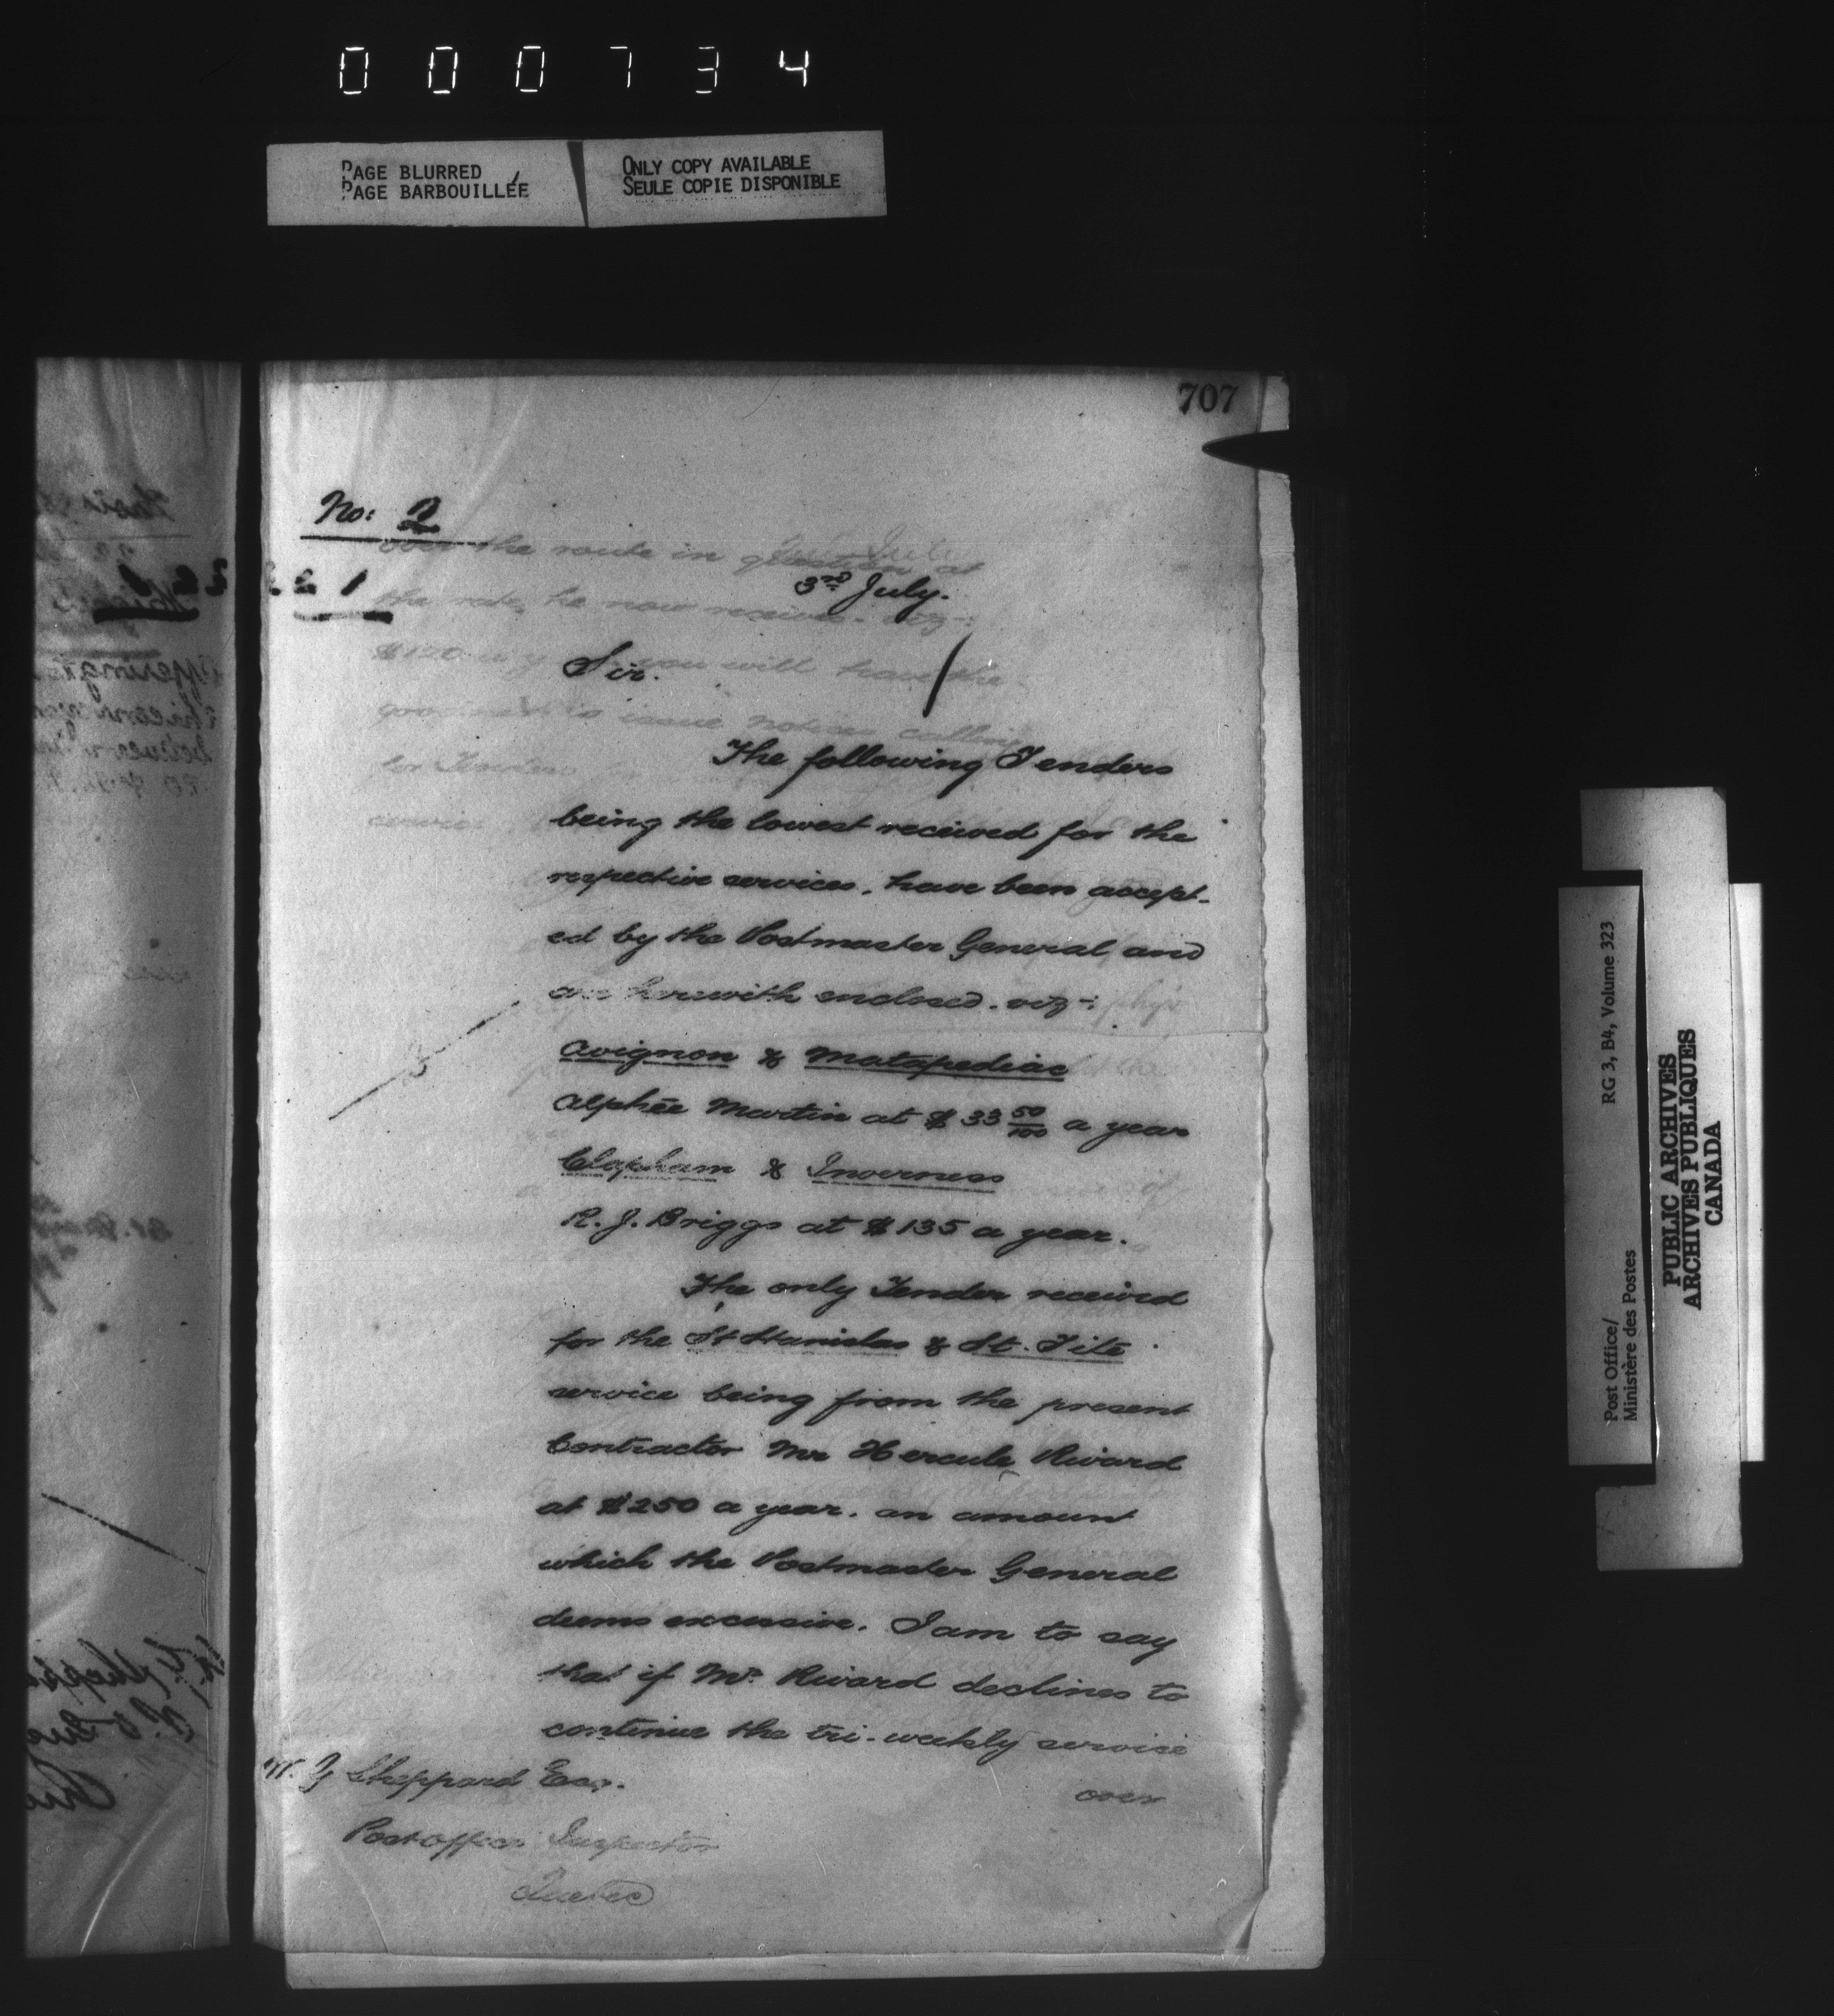 000734
PAGE BLURRED
PAGE BARBOUILLÉE
ONLY COPY AVAILABLE
SEULE COPIE DISPONIBLE
707
No: 2
over the route in question at
3rd July.
the rate he now receives. viz-:
Sir.
$120 a you will have the
to issue notices calling
The following Tenders
for Tenders
being the lowest received for the
service
respective services, have been accept-
ed by the Postmaster General, and
are herewith enclosed. viz-:
Avignon & Matapediac
Alphée Martin at $33 50/100 a year
Clapham & Inverness
R. J. Briggs at $135 a year.
The only Tender received
for the St Stanislas & St. Tite
service being from the present
Contractor Mr Hercule Rivard
at $250 a year. an amount
which the Postmaster General
deems excessive. I am to say
that if Mr. Rivard declines to
continue the tri-weekly service
over
W. G Sheppard Esq.
Post Office Inspector
Quebec
Post Office/
Ministère des Postes
RG 3, B4, Volume 323
PUBLIC ARCHIVES
ARCHIVES PUBLIQUES
CANADA